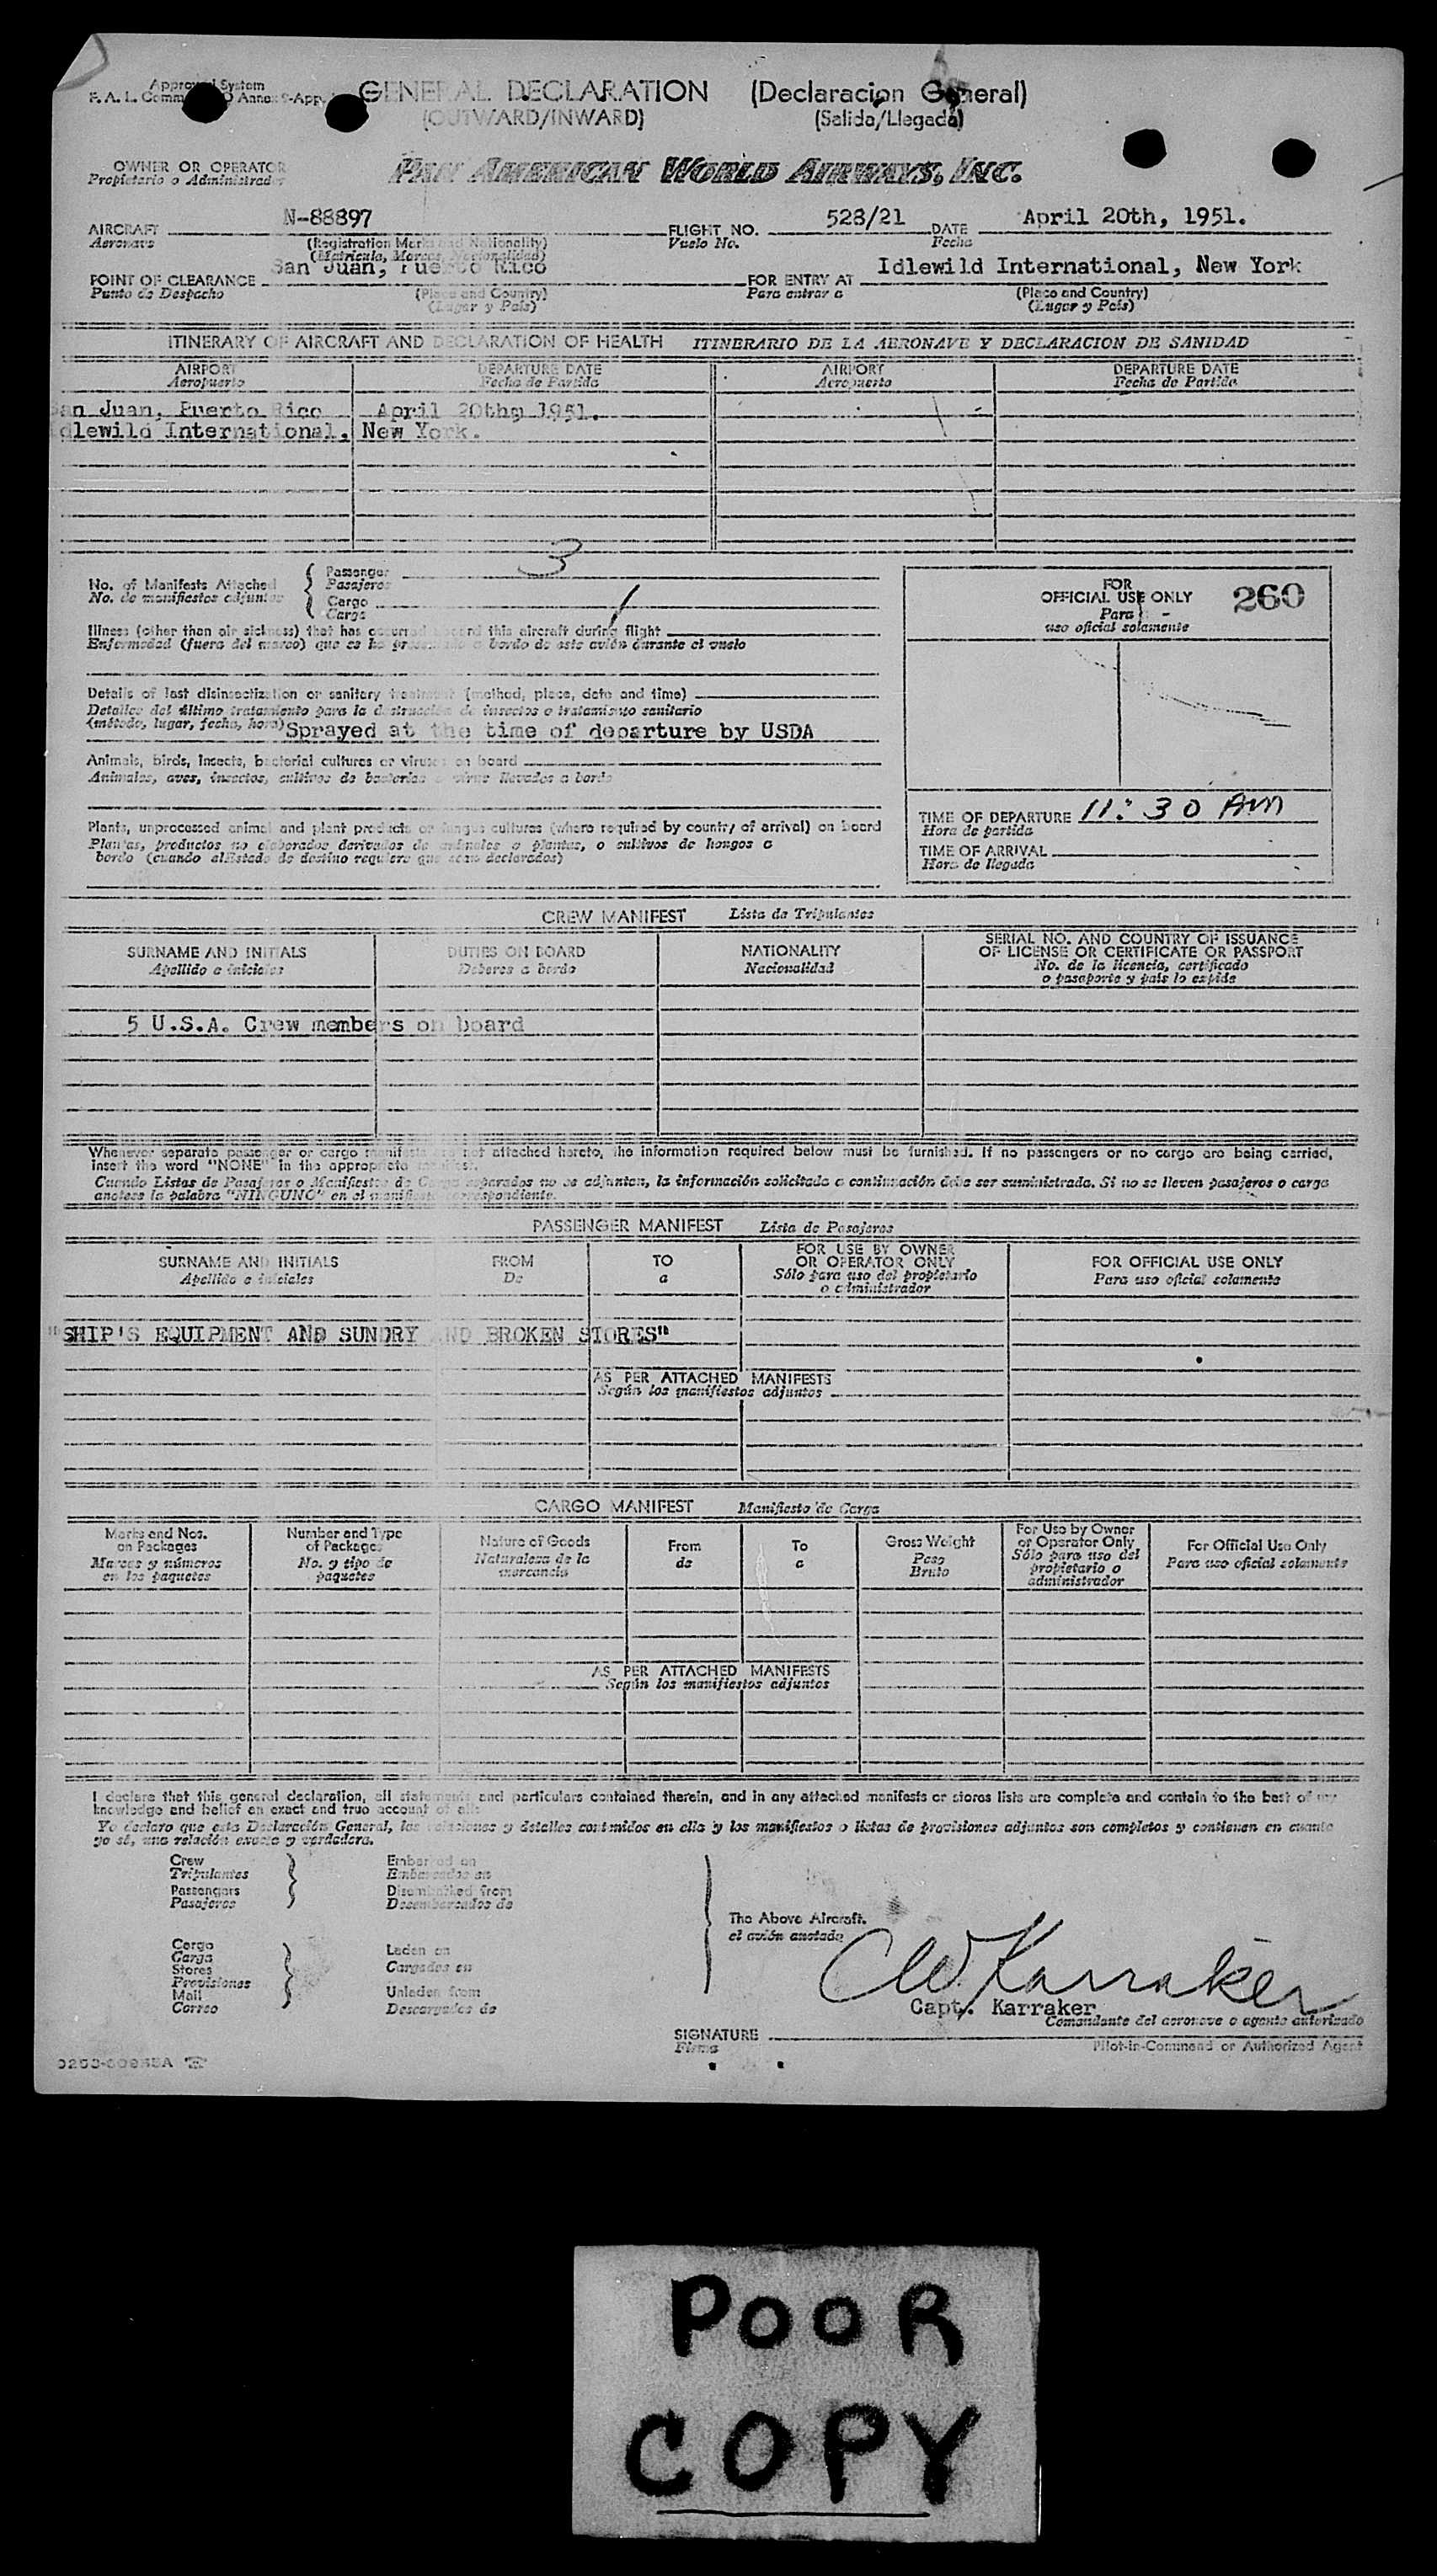 Approval System
F. A. L. Comm 9-App.
GENERAL DECLARATION (Declaracion General)
(OUTWARD/INWARD) (Salida/Llegada)
OWNER OR OPERATOR
Propietario o Administrador
PAN AMERICAN WORLD AIRWAYS, INC.
AIRCRAFT N-88897 FLIGHT NO. 528/21 DATE April 20th, 1951.
Aeronave (Registration Marks and Nationality) Vuelo No. Fecha
(Matricula, Marcas, Nacionalidad)
POINT OF CLEARANCE San Juan, Puerto Rico FOR ENTRY AT Idlewild International, New York
Punto de Despacho (Place and Country) Para entrar a (Place and Country)
(Lugar y Pais) (Lugar y Pais)
ITINERARY OF AIRCRAFT AND DECLARATION OF HEALTH ITINERARIO DE LA AERONAVE Y DECLARACION DE SANIDAD
AIRPORT DEPARTURE DATE AIRPORT DEPARTURE DATE
Aeropuerto Fecha de Partida Aeropuerto Fecha de Partida
San Juan, Puerto Rico April 20th, 1951.
Idlewild International, New York.
No. of Manifests Attached Passenger 3
No. de manifiestos adjuntos Pasajeros
Cargo 1
Carga
Illness (other than air sickness) that has occurred aboard this aircraft during flight
Enfermedad (fuera del mareo) que se ha presentado a bordo de este avión durante el vuelo
Details of last disinsectization or sanitary treatment (method, place, date and time)
Detalles del último tratamiento para la destrucción de insectos o tratamiento sanitario
(método, lugar, fecha, hora) Sprayed at the time of departure by USDA
Animals, birds, insects, bacterial cultures or viruses on board
Animales, aves, insectos, cultivos de bacterias o virus llevados a bordo
Plants, unprocessed animal and plant products or fungus cultures (where required by country of arrival) on board
Plantas, productos no elaborados derivados de animales o plantas, o cultivos de hongos a
bordo (cuando el Estado de destino requiere que sean declarados)
FOR
OFFICIAL USE ONLY 260
Para
uso oficial solamente
TIME OF DEPARTURE 11:30 AM
Hora de partida
TIME OF ARRIVAL
Hora de llegada
CREW MANIFEST Lista de Tripulantes
SURNAME AND INITIALS DUTIES ON BOARD NATIONALITY SERIAL NO. AND COUNTRY OF ISSUANCE
OF LICENSE OR CERTIFICATE OR PASSPORT
Apellido e iniciales Deberes a bordo Nacionalidad No. de la licencia, certificado
o pasaporte y país lo expide
5 U.S.A. Crew members on board
Whenever separate passenger or cargo manifests are not attached hereto, the information required below must be furnished. If no passengers or no cargo are being carried,
insert the word "NONE" in the appropriate manifest.
Cuando Listas de Pasajeros o Manifiestos de Carga separados no se adjuntan, la información solicitada a continuación debe ser suministrada. Si no se lleven pasajeros o carga
anotese la palabra "NINGUNO" en el manifiesto correspondiente.
PASSENGER MANIFEST Lista de Pasajeros
SURNAME AND INITIALS FROM TO FOR USE BY OWNER
OR OPERATOR ONLY FOR OFFICIAL USE ONLY
Apellido e iniciales De a Sólo para uso del propietario
o administrador Para uso oficial solamente
"SHIP'S EQUIPMENT AND SUNDRY AND BROKEN STORES"
AS PER ATTACHED MANIFESTS
Según los manifiestos adjuntos
CARGO MANIFEST Manifiesto de Carga
Marks and Nos.
on Packages
Marcas y números
en los paquetes
Number and Type
of Packages
No. y tipo de
paquetes
Nature of Goods
Naturaleza de la
mercancia
From
de
To
a
Gross Weight
Peso
Bruto
For Use by Owner
or Operator Only
Sólo para uso del
propietario o
administrador
For Official Use Only
Para uso oficial solamente
AS PER ATTACHED MANIFESTS
Según los manifiestos adjuntos
I declare that this general declaration, all statements and particulars contained therein, and in any attached manifests or stores lists are complete and contain to the best of my
knowledge and belief an exact and true account of all:
Yo declaro que esta Declaración General, las relaciones y detalles contenidos en ella y los manifiestos o listas de provisiones adjuntos son completos y contienen en cuanto
yo sé, una relación exacta y verdadera.
Crew Embarked on
Tripulantes Embarcados en
Passengers Disembarked from
Pasajeros Desembarcados de
The Above Aircraft.
el avión anotado
Cargo
Carga Laden on
Stores Cargados en
Provisiones
Mail Unladen from
Correo Descargados de
CW Karraker
Capt. Karraker
Comandante del aeronave o agente autorizado
SIGNATURE
Firma Pilot-in-Command or Authorized Agent
POOR
COPY